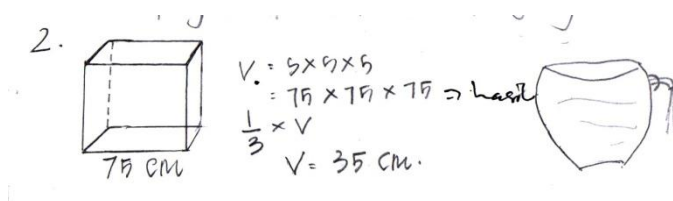 2.
75 CM
V. = S×S×S
= 75 × 75 × 75 => hasil
1/3 × V
V = 35 CM.